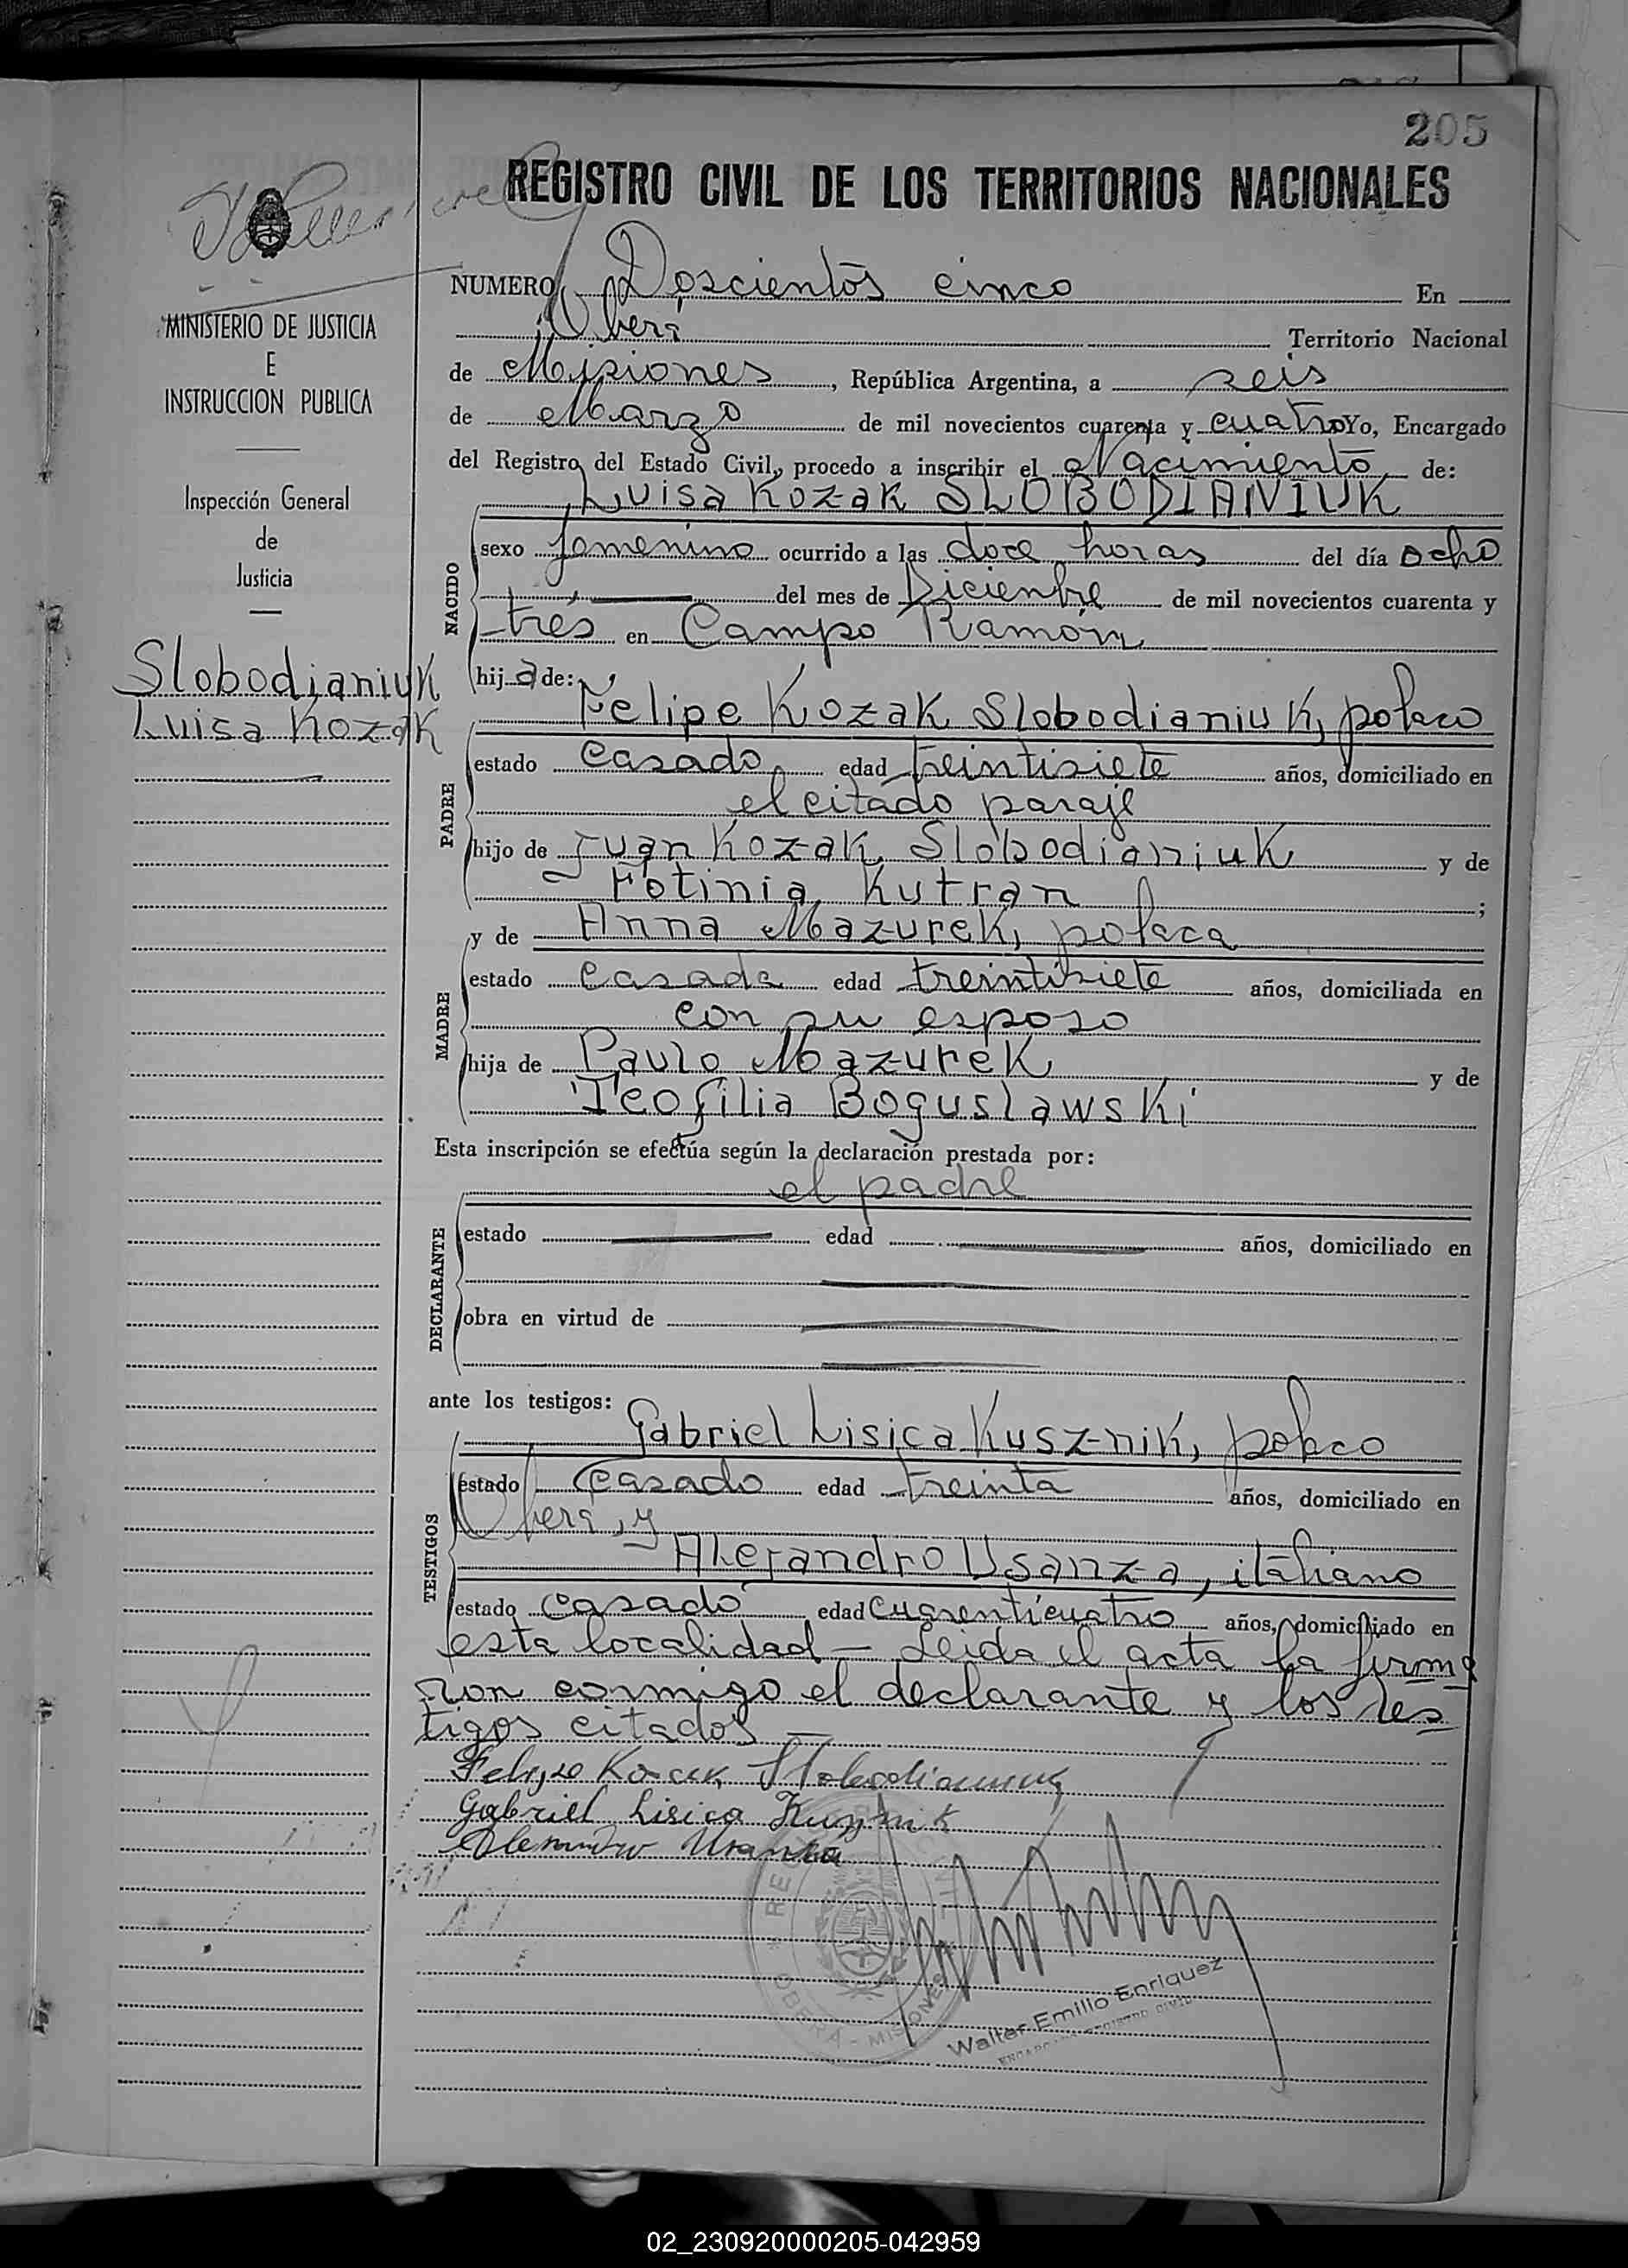 205
REGISTRO CIVIL DE LOS TERRITORIOS NACIONALES
NUMERO Doscientos cinco En
Oberá Territorio Nacional
de Misiones, República Argentina, a seis
de Marzo de mil novecientos cuarenta y cuatro Yo, Encargado
del Registro del Estado Civil, procedo a inscribir el Nacimiento de:
Luisa Kozak SLOBODIANIUK
NACIDO
sexo femenino ocurrido a las doce horas del día ocho
del mes de Diciembre de mil novecientos cuarenta y
tres en Campo Ramón
hija de:
Felipe Kozak Slobodianiuk, polaco
PADRE
estado casado edad treintisiete años, domiciliado en
el citado paraje
hijo de Juan Kozak Slobodianiuk y de
Fotinia Kutran;
y de Anna Mazurek, polaca
MADRE
estado casada edad treintisiete años, domiciliada en
con su esposo
hija de Paulo Mazurek y de
Teofilia Boguslawski
Esta inscripción se efectúa según la declaración prestada por:
el padre
DECLARANTE
estado edad años, domiciliado en
obra en virtud de
ante los testigos:
Gabriel Lisica Kusznik, polaco
TESTIGOS
estado casado edad treinta años, domiciliado en
Oberá, y
Alejandro Usanza, italiano
estado casado edad cuarenticuatro años, domiciliado en
esta localidad – Leida el acta la firma
ron conmigo el declarante y los tes
tigos citados
Felipe Kozak Slobodianiuk
Gabriel Lisica Kusznik
Alejandro Usanza
OBERÁ - MISIONES
Walter Emilio Enriquez
ENCARGADO REGISTRO CIVIL
MINISTERIO DE JUSTICIA
E
INSTRUCCION PUBLICA
Inspección General
de
Justicia
Slobodianiuk
Luisa Kozak
02_230920000205-042959